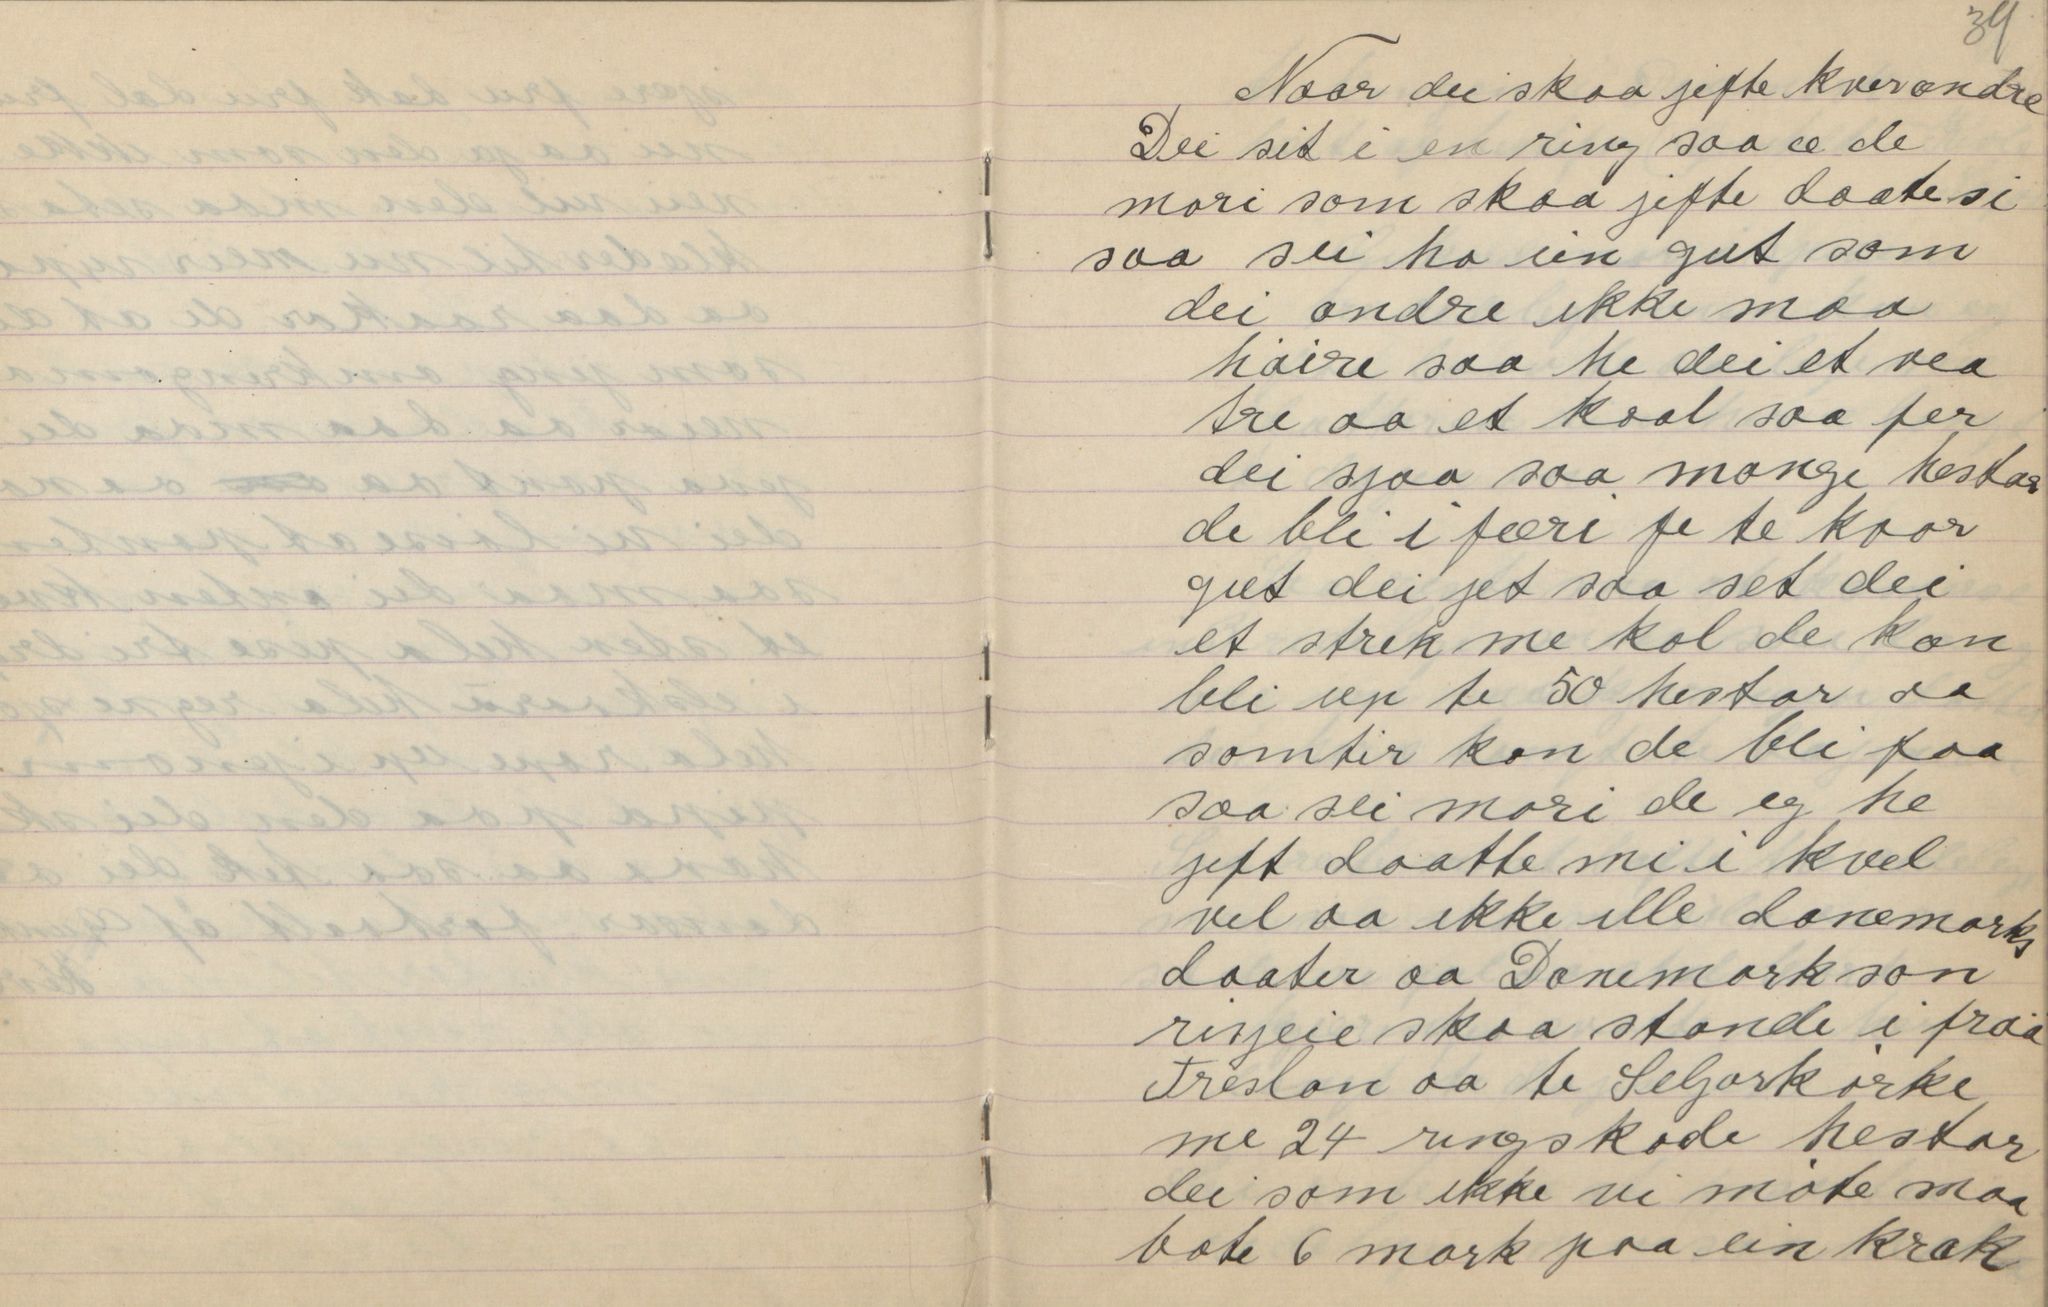 34
Naar dei skaa jifte kverandre
Dei sit i en ring saa æ de
mori som skaa jifte daate si
saa sei ho ein gut som
dei andre ikke maa
høire saa he dei et vea
tre aa et kaal saa fer
dei sjaa saa mange hestar
de bli i færi fe te kaar
gut dei jet saa set dei
et strek me kol de kan
bli up te 50 hestar aa
somtir kan de bli faa
saa sei mori de eg he
jift daatte mi i kvel
vel aa ikke ille danemarks
daater aa Danemark son
risjeie skaa stande i fraa
Treslan aa te Seljorkørke
me 24 ringskode hestar
dei som ikke vi møte maa
bøte 6 mark paa ein krak